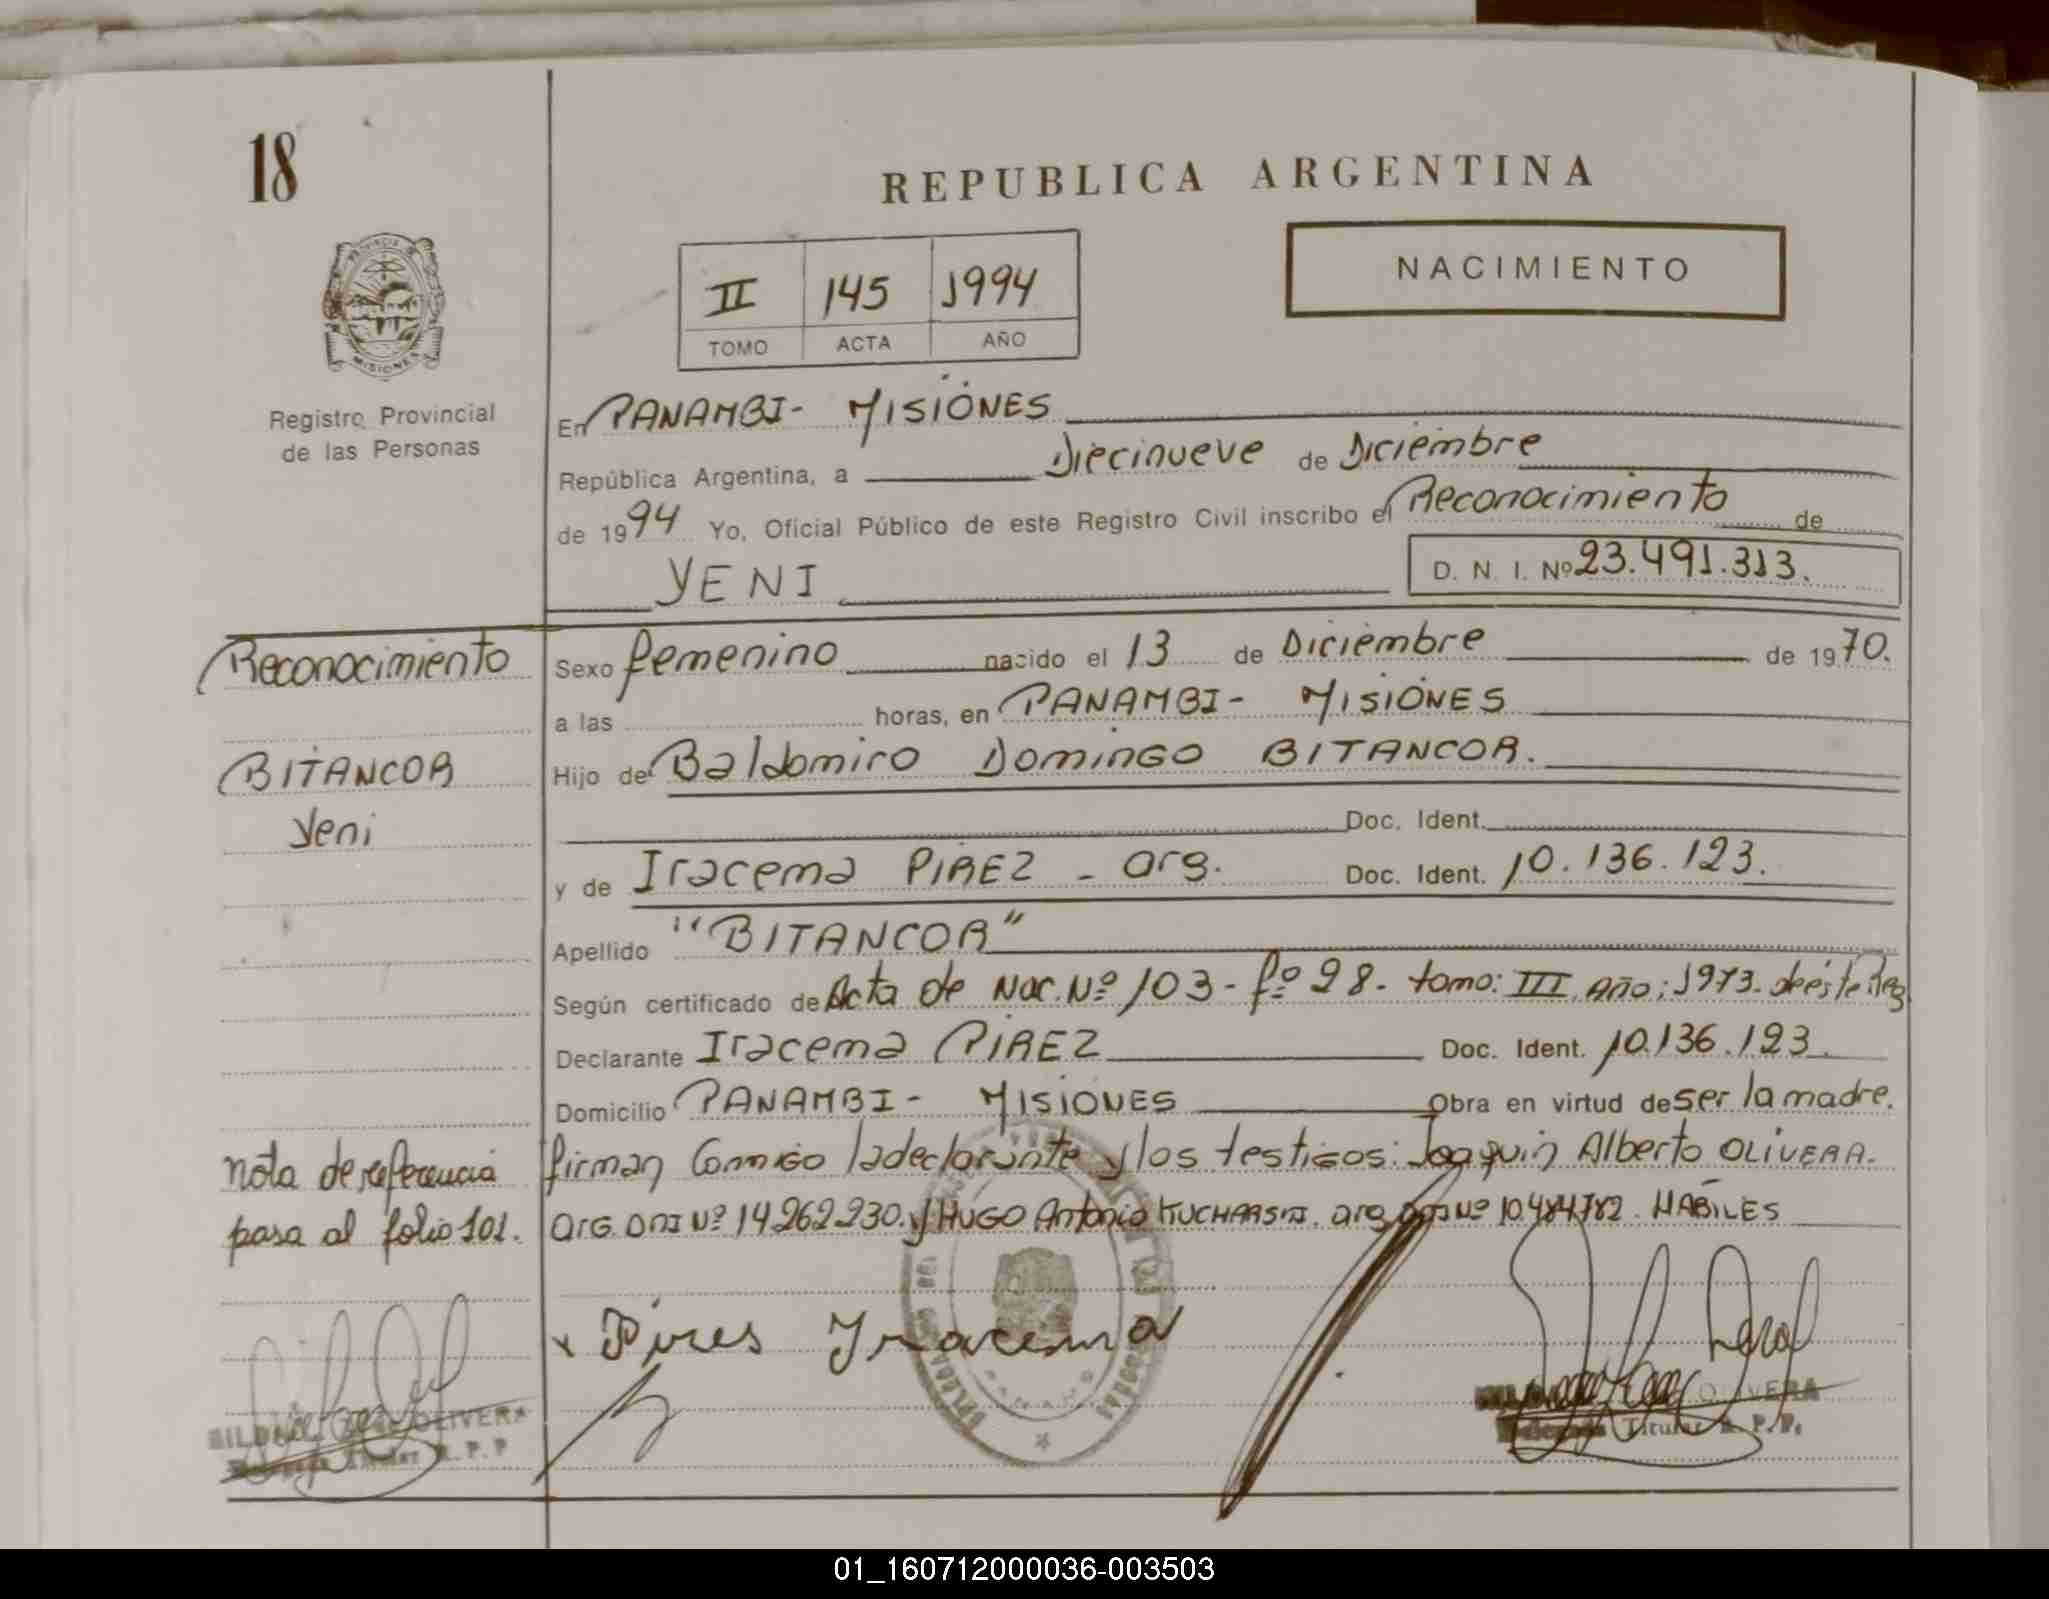 18
REPUBLICA ARGENTINA
NACIMIENTO
II 145 1994
TOMO ACTA AÑO
PROVINCIA DE
MISIONES
Registro Provincial
de las Personas
En PANAMBI- MISIONES
República Argentina, a Diecinueve de Diciembre
de 1994 Yo, Oficial Público de este Registro Civil inscribo el Reconocimiento de
YENI D. N. I. Nº 23.491.313.
Reconocimiento
BITANCOR
Yeni
Sexo femenino nacido el 13 de Diciembre de 1970.
a las horas, en PANAMBI- MISIONES
Hijo de Baldomiro Domingo BITANCOR.
Doc. Ident.
y de Iracema PIREZ - arg. Doc. Ident. 10.136.123.
Apellido "BITANCOR"
Según certificado de Acta de Nac. Nº 103- fº 98- tomo: III, Año: 1973. de éste Reg
Declarante Iracema PIREZ Doc. Ident. 10.136.123.
Domicilio PANAMBI- MISIONES Obra en virtud de ser la madre.
firman Conmigo la declarante y los testigos: Joaquin Alberto OLIVERA.
arg. DNI Nº 14.262.230. y HUGO Antonio arg. DNI Nº 10.484.782. HABILES
nota de referencia
pasa al folio 101.
x Pires Iracema
OLIVERA
Titular R. P. P.
OLIVERA
Titular R. P. P.
01_160712000036-003503